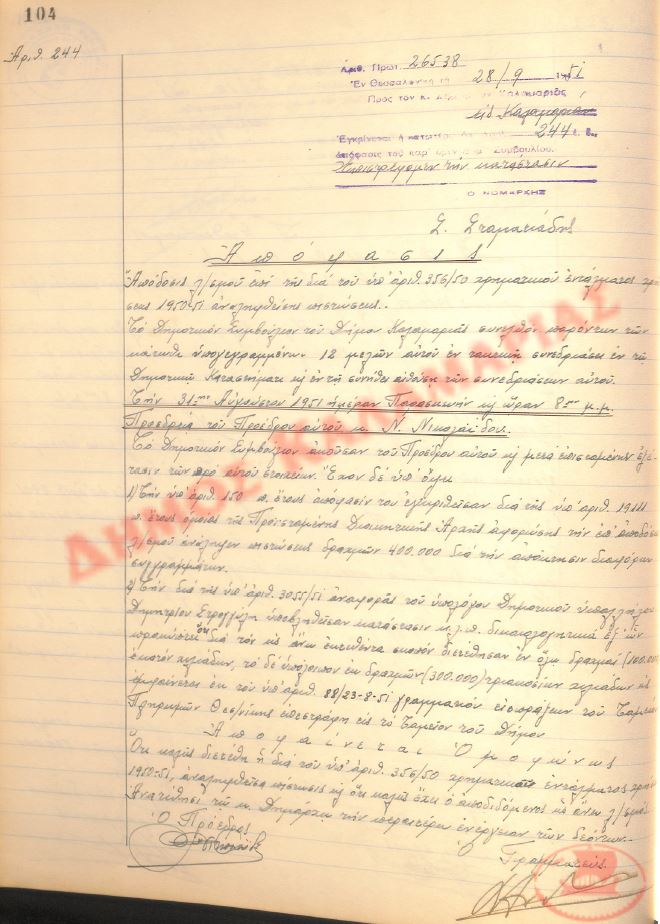 104
Αριθ. 244
Αριθ. Πρωτ. 26538
Ἐν Θεσσαλονίκῃ τῇ 28/9 1951
Πρὸς τὸν κ. Δήμαρχον Καλαμαριᾶς
εἰς Καλαμαριάν
Ἐγκρίνεται ἡ κατωτέρω 244 ἐ. ἔ.
ἀπόφασις τοῦ Συμβουλίου.
Ἐπιστρέφομεν τὴν κατάστασιν
Ο ΝΟΜΑΡΧΗΣ
Σ. Σταματιάδης
Ἀπόφασις
Ἀπόδοσις λ/σμοῦ ἐπὶ τῆς διὰ τοῦ ὑπ' ἀριθ. 356/50 χρηματικοῦ ἐντάλματος χρή
σεως 1950-51 ἀναληφθείσης πιστώσεως.
Τὸ Δημοτικὸν Συμβούλιον τοῦ Δήμου Καλαμαριᾶς συνελθὸν παρόντων τῶν
κάτωθι ὑπογεγραμμένων 12 μελῶν αὐτοῦ ἐν τακτικῇ συνεδριάσει ἐν τῷ
Δημοτικῷ Καταστήματι κ ἐν τῇ συνήθει αἰθούσῃ τῶν συνεδριάσεων αὐτοῦ.
Τὴν 31ην Αὐγούστου 1951 ἡμέραν Παρασκευὴν κ ὥραν 8ην μ.μ.
Προεδρίᾳ τοῦ Προέδρου αὐτοῦ κ. Ν. Νικολαΐδου.
Τὸ Δημοτικὸν Συμβούλιον ἀκοῦσαν τοῦ Προέδρου αὐτοῦ κ μετὰ ἐπισταμένην ἐξέ
τασιν τῶν πρὸ αὐτοῦ στοιχείων. Ἔχον δὲ ὑπ' ὄψει
1) Τὴν ὑπ' ἀριθ. 150 π. ἔτους ἀπόφασίν του ἐγκριθεῖσαν διὰ τῆς ὑπ' ἀριθ.
π. ἔτους ὁμοίας τῆς Προϊσταμένης Διοικητικῆς Ἀρχῆς ἀφορώσης τὴν ἐπ' ἀποδόσει
λ/σμοῦ ἀνάληψιν πιστώσεως δραχμῶν 400.000 διὰ τὴν ἀπόκτησιν διαφόρων
συγγραμμάτων.
2) Τὴν διὰ τῆς ὑπ' ἀριθ. 3055/51 ἀναφορᾶς τοῦ ὑπολόγου Δημοτικοῦ ὑπαλλήλου
Δημητρίου Στρογγύλη ὑποβληθεῖσαν κατάστασιν κ.λ.π. δικαιολογητικὰ ἐξ ὧν
προκύπτει ὅτι διὰ τὸν ὡς ἄνω σκοπὸν διετέθησαν ἐν ὅλῳ δραχμαὶ (100.000)
ἑκατὸν χιλιάδων, τὸ δὲ ὑπόλοιπον ἐκ δραχμῶν (300.000) τριακοσίων χιλιάδων ὡς
ἐμφαίνεται ἐκ τοῦ ὑπ' ἀριθ. 88/23-8-51 γραμματίου εἰσπράξεων τοῦ Ταμείου
Πληρωμῶν Θεσ/νίκης ἐπεστράφη εἰς τὸ Ταμεῖον τοῦ Δήμου
Ἀποφαίνεται Ὁμοφώνως
Ὅτι καλῶς διετέθη ἡ διὰ τοῦ ὑπ' ἀριθ. 356/50 χρηματικοῦ ἐντάλματος χρήσ.
1950-51, ἀναληφθεῖσα πίστωσις κ ὅτι καλῶς ἔχει ὁ ἀποδιδόμενος ὡς ἄνω λ/σμὸς
Ἀνατίθησι τῷ κ. Δημάρχῳ τὴν περαιτέρω ἐνέργειαν τῶν δεόντων.
Ὁ Πρόεδρος
Γραμματεύς.
ΔΗΜΟΣ ΚΑΛΑΜΑΡΙΑΣ